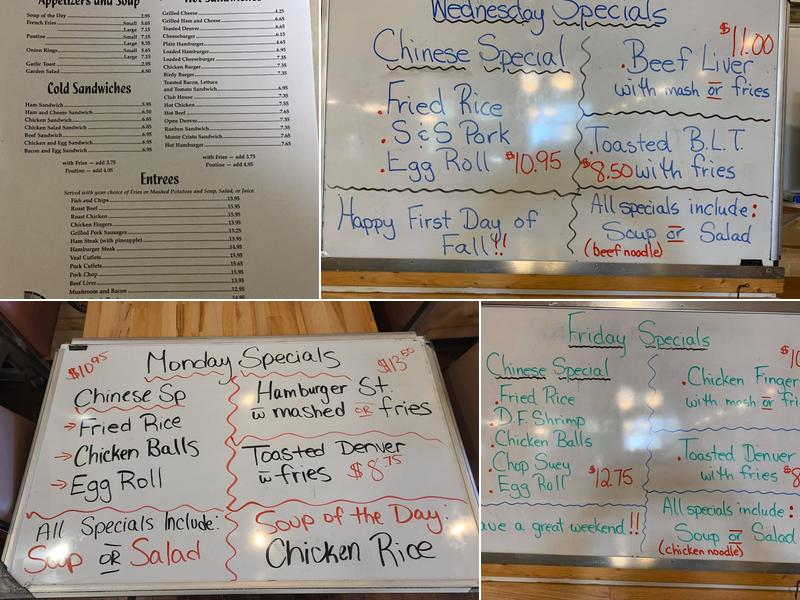 Appetizers and Soup
Soup of the Day 2.95
French Fries Small 5.65
Large 7.15
Poutine Small 7.15
Large 8.35
Onion Rings Small 5.65
Large 7.15
Garlic Toast 2.95
Garden Salad 6.50
Cold Sandwiches
Ham Sandwich 5.95
Ham and Cheese Sandwich 6.50
Chicken Sandwich 6.85
Chicken Salad Sandwich 6.85
Beef Sandwich 6.95
Chicken and Egg Sandwich 6.95
Bacon and Egg Sandwich 6.95
with Fries — add 3.75
Poutine – add 4.95
Hot Sandwiches
Grilled Cheese 4.25
Grilled Ham and Cheese 6.65
Toasted Denver 6.65
Cheeseburger 6.15
Plain Hamburger 4.65
Loaded Hamburger 6.95
Loaded Cheeseburger 7.35
Chicken Burger 7.35
Birdy Burger 7.35
Toasted Bacon, Lettuce
and Tomato Sandwich 6.95
Club House 7.35
Hot Chicken 7.55
Hot Beef 7.65
Open Denver 7.35
Rueben Sandwich 7.35
Monte Cristo Sandwich 7.65
Hot Hamburger 7.65
with Fries — add 3.75
Poutine – add 4.95
Entrees
Served with your choice of Fries or Mashed Potatoes and Soup, Salad, or Juice.
Fish and Chips 13.95
Roast Beef 15.95
Roast Chicken 15.95
Chicken Fingers 13.95
Grilled Pork Sausages 13.25
Ham Steak (with pineapple) 13.95
Hamburger Steak 14.95
Veal Cutlets 15.95
Pork Cutlets 15.65
Pork Chop 15.95
Beef Liver 13.95
Mushroom and Bacon 12.95
Wednesday Specials
Chinese Special
.Fried Rice
.S & S Pork
.Egg Roll $10.95
$11.00
.Beef Liver
with mash or fries
.Toasted B.L.T.
$8.50 with fries
Happy First Day of
Fall!!
All specials include:
Soup or Salad
(beef noodle)
$10.95
Monday Specials
$13.50
Chinese Sp
→Fried Rice
→Chicken Balls
→Egg Roll
Hamburger St.
w mashed OR fries
Toasted Denver
w fries $8.75
All Specials Include:
Soup OR Salad
Soup of the Day:
Chicken Rice
Friday Specials
Chinese Special
.Fried Rice
.D.F. Shrimp
.Chicken Balls
.Chop Suey
.Egg Roll $12.75
.Chicken Finger
with mash or fri
.Toasted Denver
with fries $8
ave a great weekend!!
All specials include:
Soup or Salad
(chicken noodle)